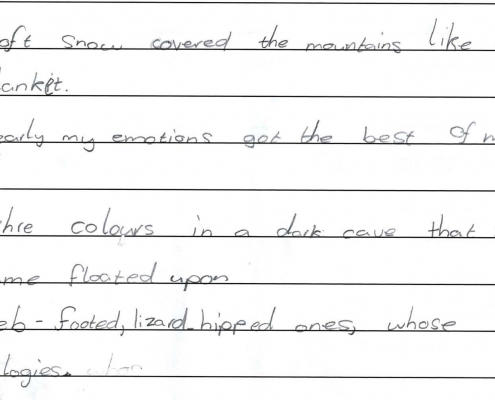 oft snow covered the mountains like
anket.
early my emotions got the best of m
hre colours in a dark cave that
me floated upon
eb-footed, lizard-hipped ones, whose
logies.